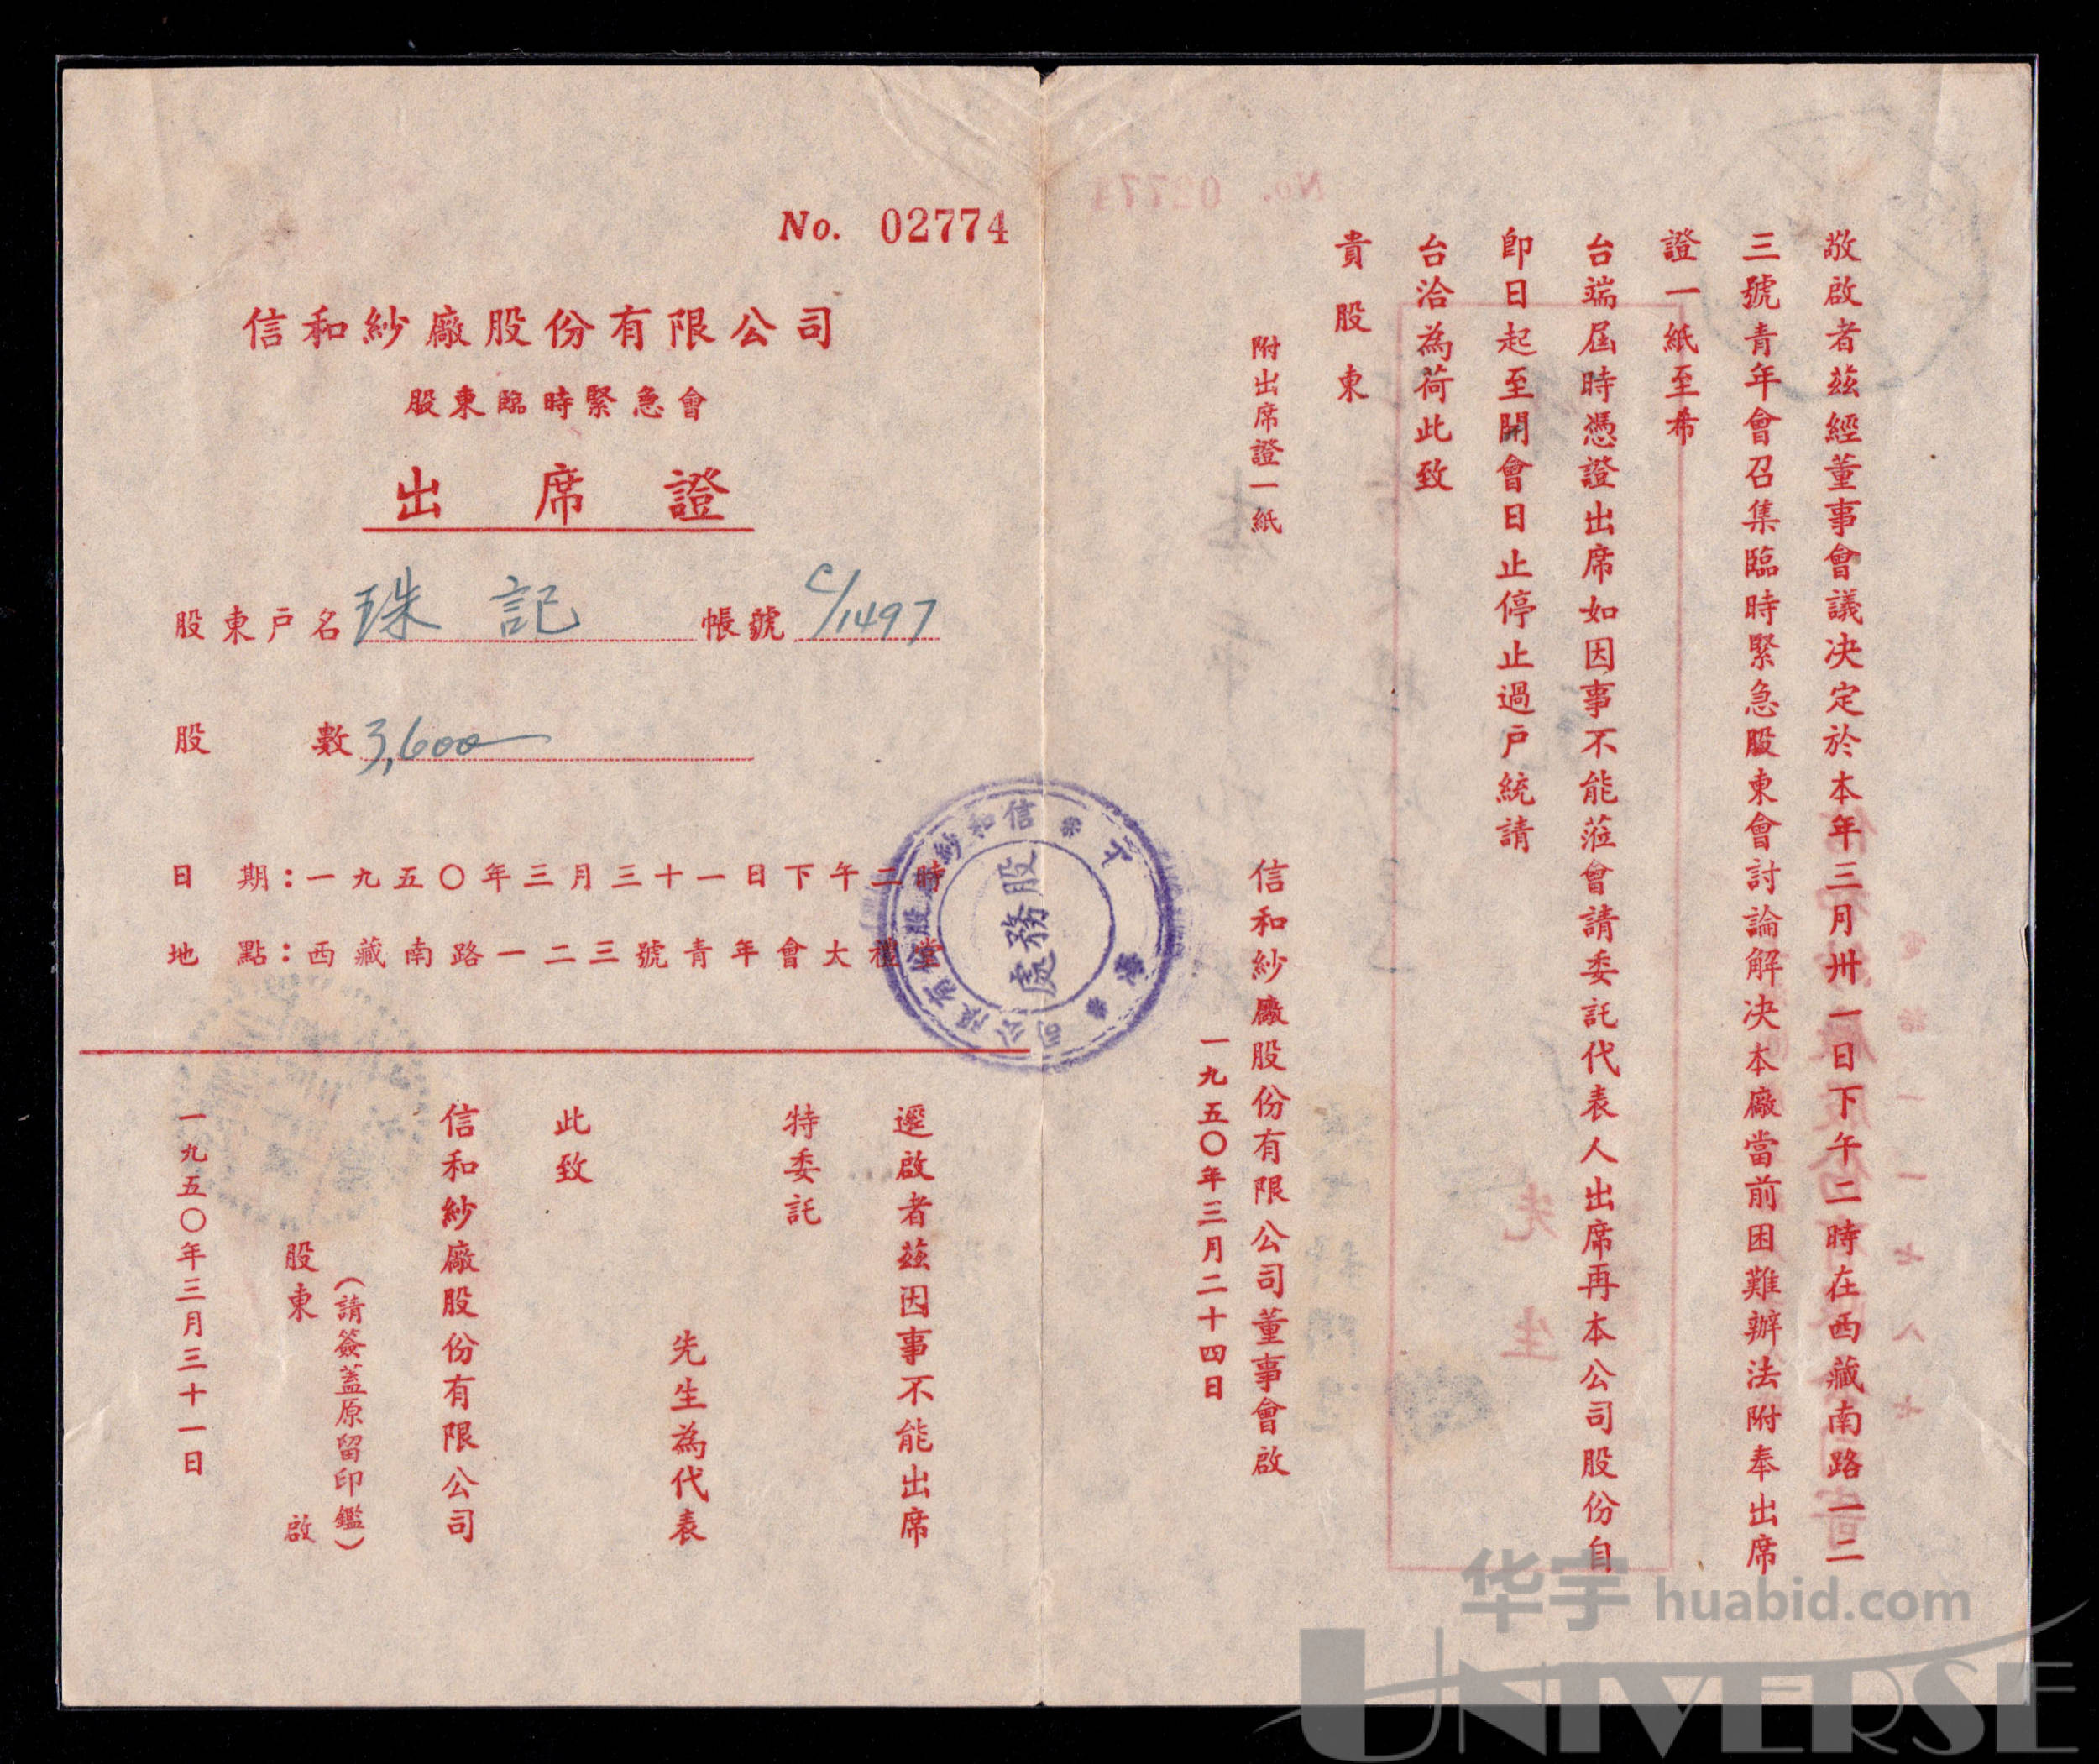 敬啟者茲經董事會議决定於本年三月卅一日下午二時在西藏南路一二
三號青年會召集臨時緊急股東會討論解决本廠當前困難辦法附奉出席
證一紙至希
台端屆時憑證出席如因事不能蒞會請委託代表人出席再本公司股份自
即日起至開會日止停止過戶統請
台洽為荷此致
貴股東
附出席證一紙
信和紗廠股份有限公司董事會啟
一九五〇年三月二十四日
No. 02774
信和紗廠股份有限公司
股東臨時緊急會
出席證
股東戶名 珠記 帳號 C/1497
股數 3,600
日期：一九五〇年三月三十一日下午二時
地點：西藏南路一二三號青年會大禮堂
信和紗廠股份有限公司
股務處
逕啟者茲因事不能出席
特委託
先生為代表
此致
信和紗廠股份有限公司
（請簽蓋原留印鑑）
股東 啟
一九五〇年三月三十一日
华宇 huabid.com
UNIVERSE